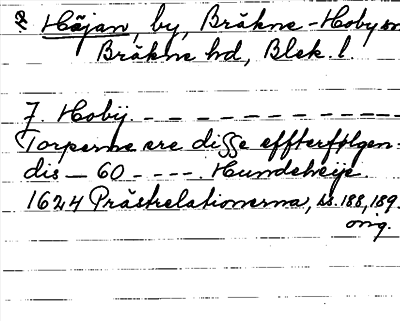 Höjan, by, Bräkne-Hoby sn
Bräkne hd, Blek. l.
J. Hobij. - - - - - - - - - -
Torperne ere disse effterfølgen-
dis — 60 - - - - . Hundeheije.
1624 Prästrelationerna, ss. 188, 189.
orig.